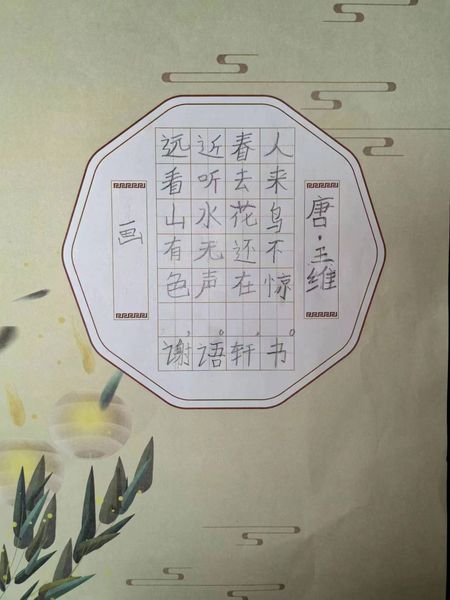 画
唐·王维
远看山有色，
近听水无声。
春去花还在，
人来鸟不惊。
谢语轩书